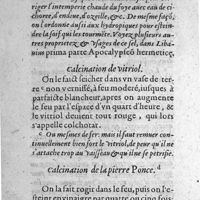 riger l'intemperie chaude du foye avec eau de ci-
chorée, d'endiue, d'ozeille, &c. De mesme façõ,
on l'ordonne aussi aux hydropiques pour esten-
dre la soif qui les tourmente. Voyez plusieurs au-
tres proprietez & vsages de ce sel, dans Liba-
uius prima parte Apocalypseõ hermetice,
Calcination de vitriol.
On le faict seicher dans vn vase de ter-
re non vernissé, à feu moderé, iusques à
parfaicte blancheur, apres on augmente
le feu par l'espace d'vn quart d'heure, &
le vitriol deuient tout rouge, qui lors
s'appelle colchotar.
Ou mesmes de fer: mais il faut remuer con-
tinuellement bien fort le vitriol, de peur qu'il ne
s'attache trop au vaisseau & qu'il ne se petrifie.
Calcination de la pierre Ponce. d
On la fait rogir dans le feu, puis on l'e-
steint en vinaigre par quatre ou cinq fois